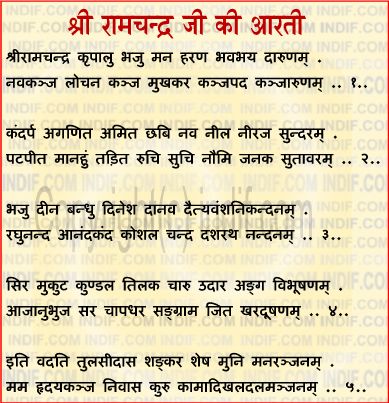 श्री रामचन्द्र जी की आरती
श्रीरामचन्द्र कृपालु भजु मन हरण भवभय दारुणम् .
नवकञ्ज लोचन कञ्ज मुखकर कञ्जपद कञ्जारुणम् .. १..
कंदर्प अगणित अमित छबि नव नील नीरज सुन्दरम् .
पटपीत मानहुं तड़ित रुचि सुचि नौमि जनक सुतावरम् .. २..
भजु दीन बन्धु दिनेश दानव दैत्यवंशनिकन्दनम् .
रघुनन्द आनंदकंद कोशल चन्द दशरथ नन्दनम् .. ३..
सिर मुकुट कुण्डल तिलक चारु उदार अङ्ग विभूषणम् .
आजानुभुज सर चापधर सङ्ग्राम जित खरदूषणम् .. ४..
इति वदति तुलसीदास शङ्कर शेष मुनि मनरञ्जनम् .
मम हृदयकञ्ज निवास कुरु कामादिखलदलमञ्जनम् .. ५..